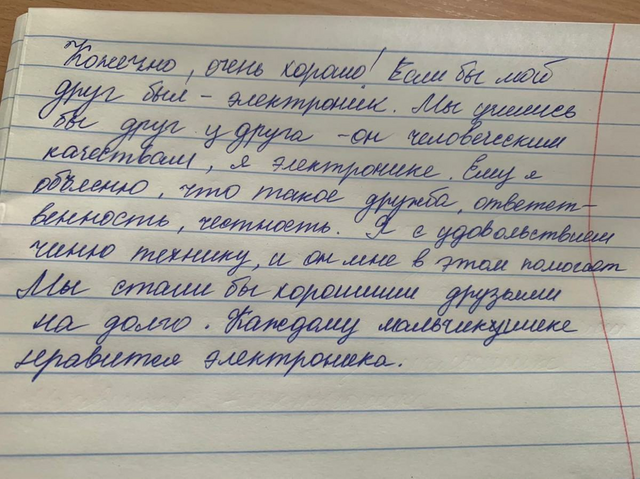 Конечно, очень хорошо! Если бы мой
друг был – электроник. Мы учились
бы друг у друга – он человеческим
качествам, я электронике. Ему я
объясню, что такое дружба, ответст-
венность, честность. Я с удовольствием
чиню технику, и он мне в этом помогает
Мы стали бы хорошими друзьями
на долго. Каждому мальчикушке
нравится электроника.